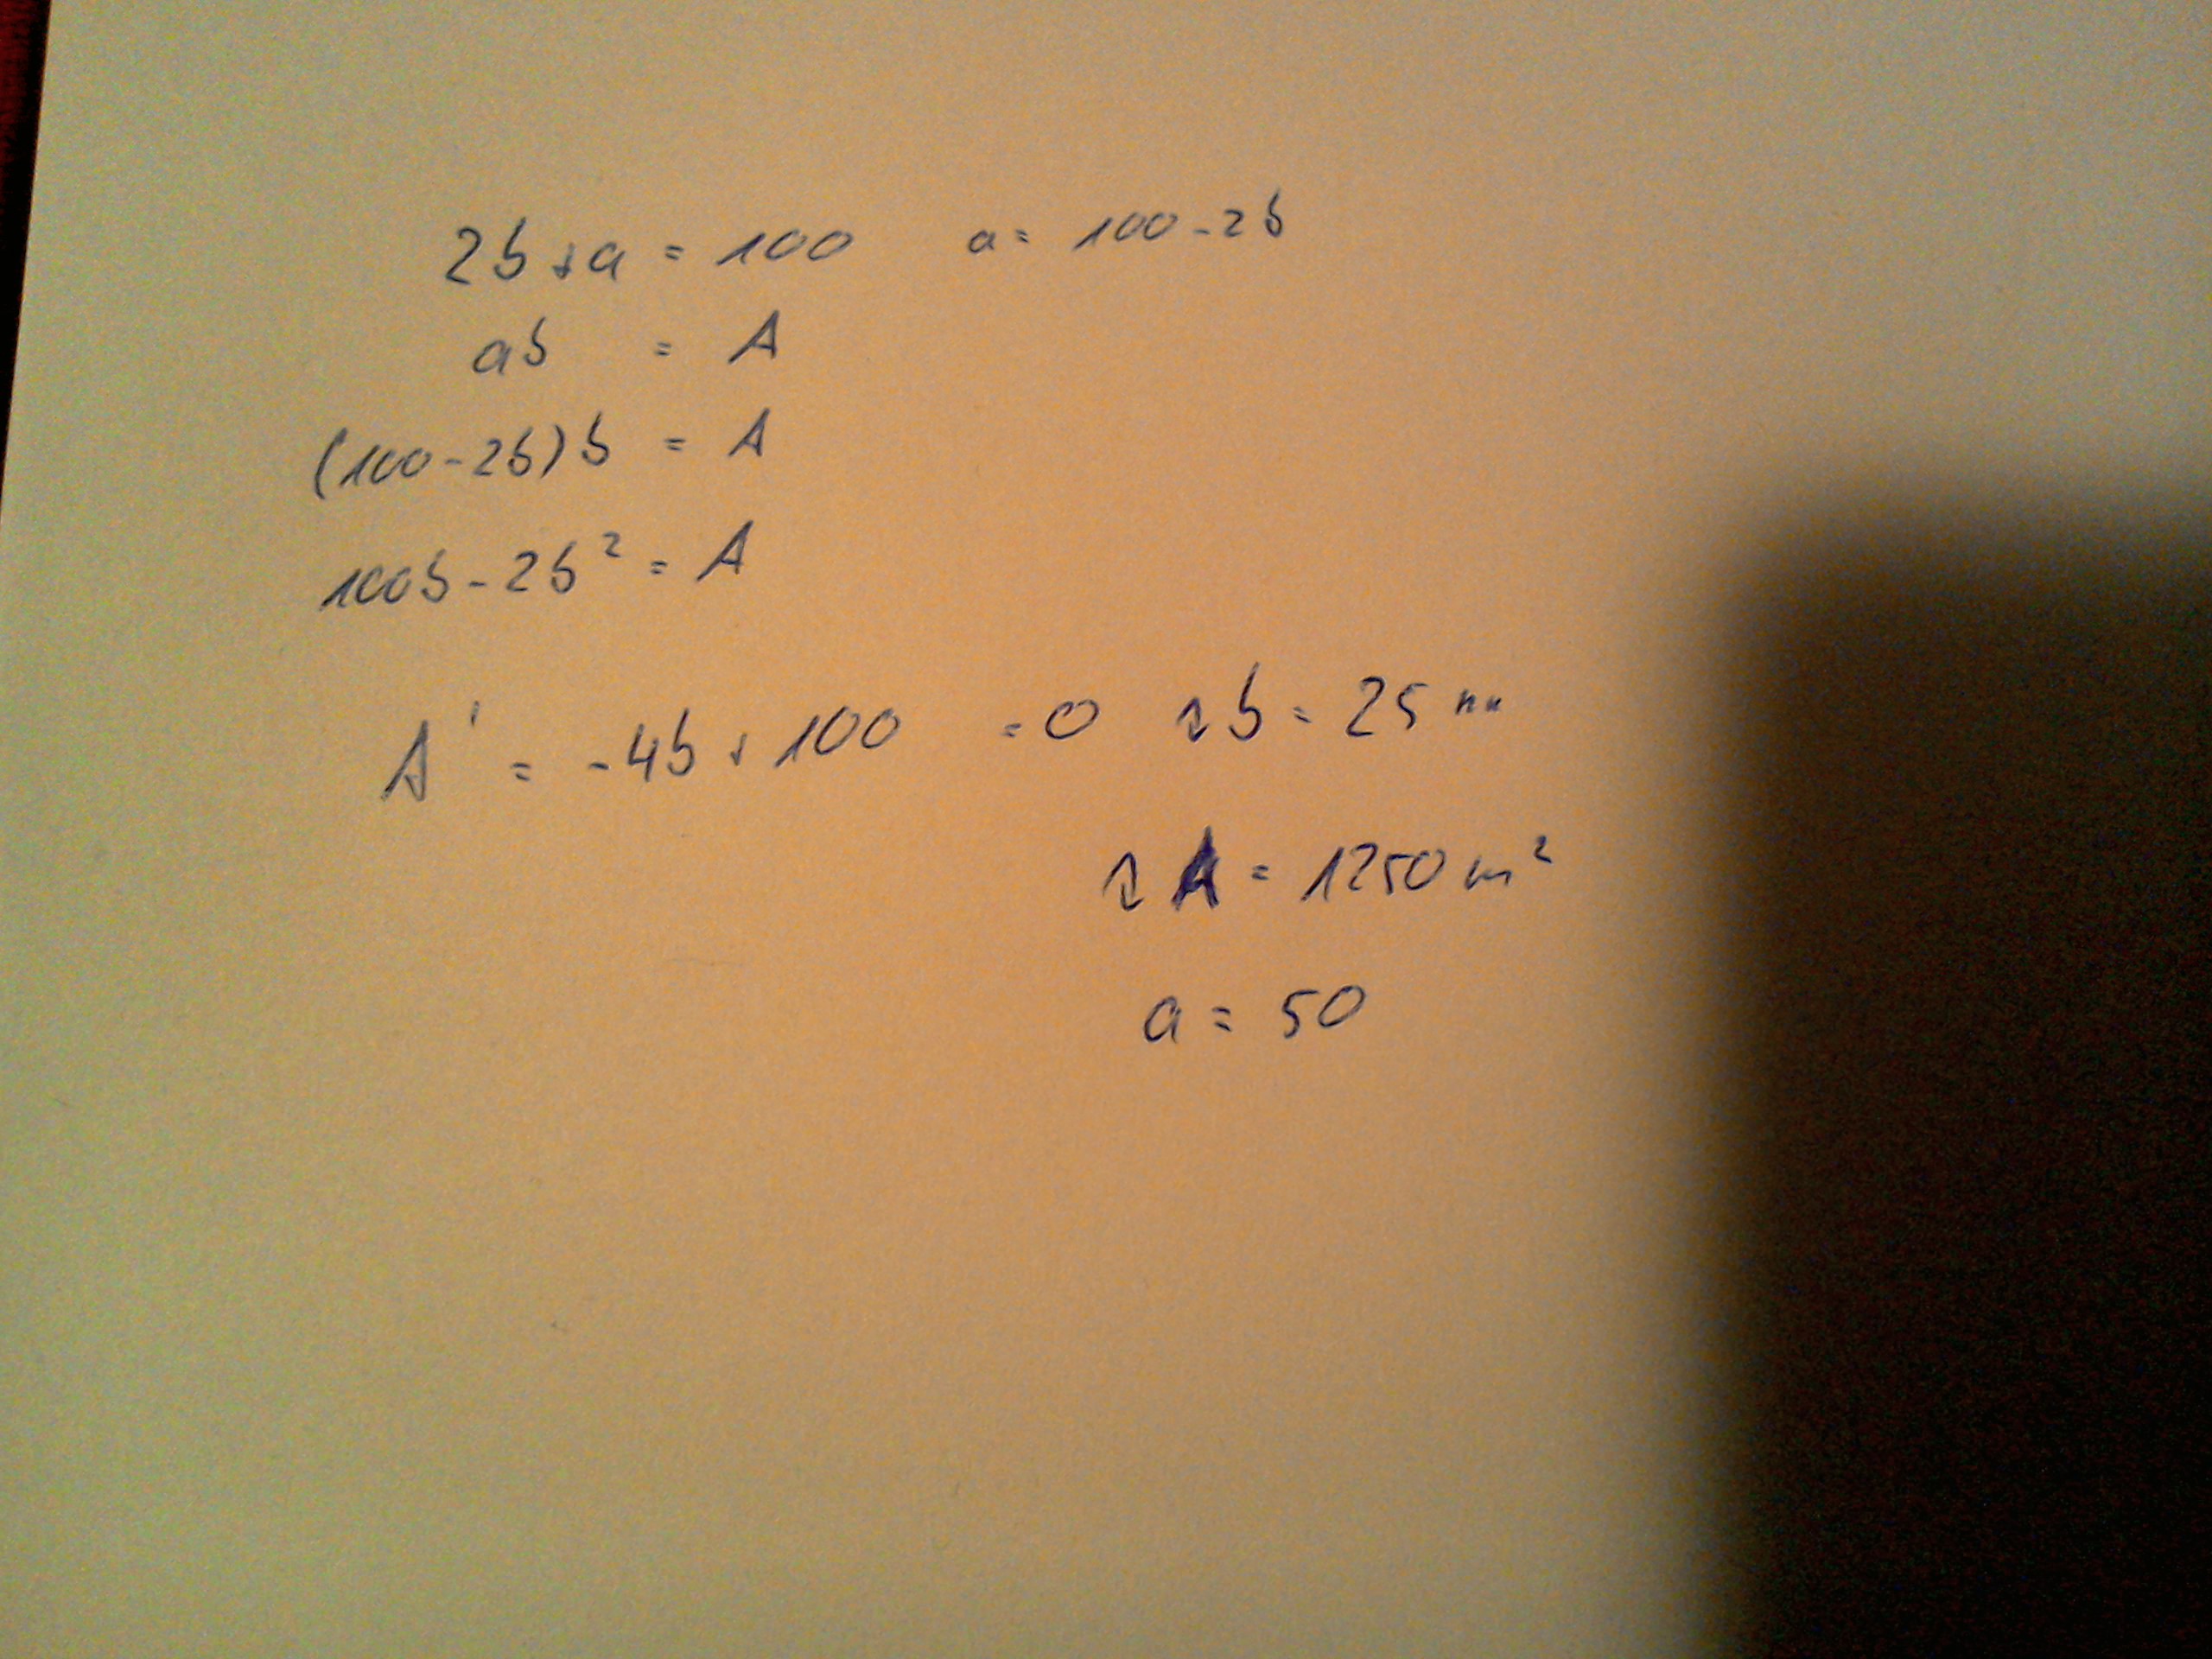 2b + a = 100 a = 100 - 2b
ab = A
(100 - 2b) b = A
100b - 2b² = A
A' = -4b + 100 = 0 b = 25 m
A = 1250 m²
a = 50